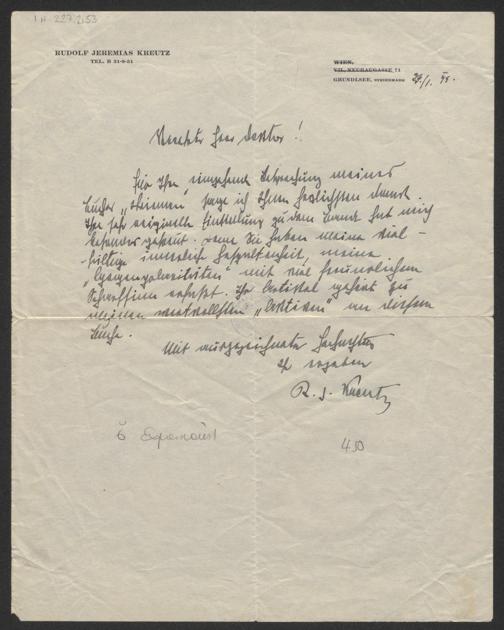 I.N. 227.253
RUDOLF JEREMIAS KREUTZ
TEL. B 31-9-51
WIEN,
VII., NEUBAUGASSE 71
GRUNDLSEE, STEIERMARK 27/1. 45.
Verehrter Herr Doktor!
Für Ihre eingehende Besprechung meines
Buches " " sage ich Ihnen herzlichsten Dank.
Ihre sehr originelle Einstellung zu dem Bande hat mich
besonders gefreut. Denn Sie haben meine viel-
fältige innerliche Gespaltenheit, meine
"Gegenpolaritäten" mit viel freundlichem
Scharfsinn erfaßt. Ihr Artikel gehört zu
meinen wertvollsten "Aktiven" an diesem
Buche.
Mit ausgezeichneter Hochachtung
Ihr ergebener
R. J. Kreutz
450